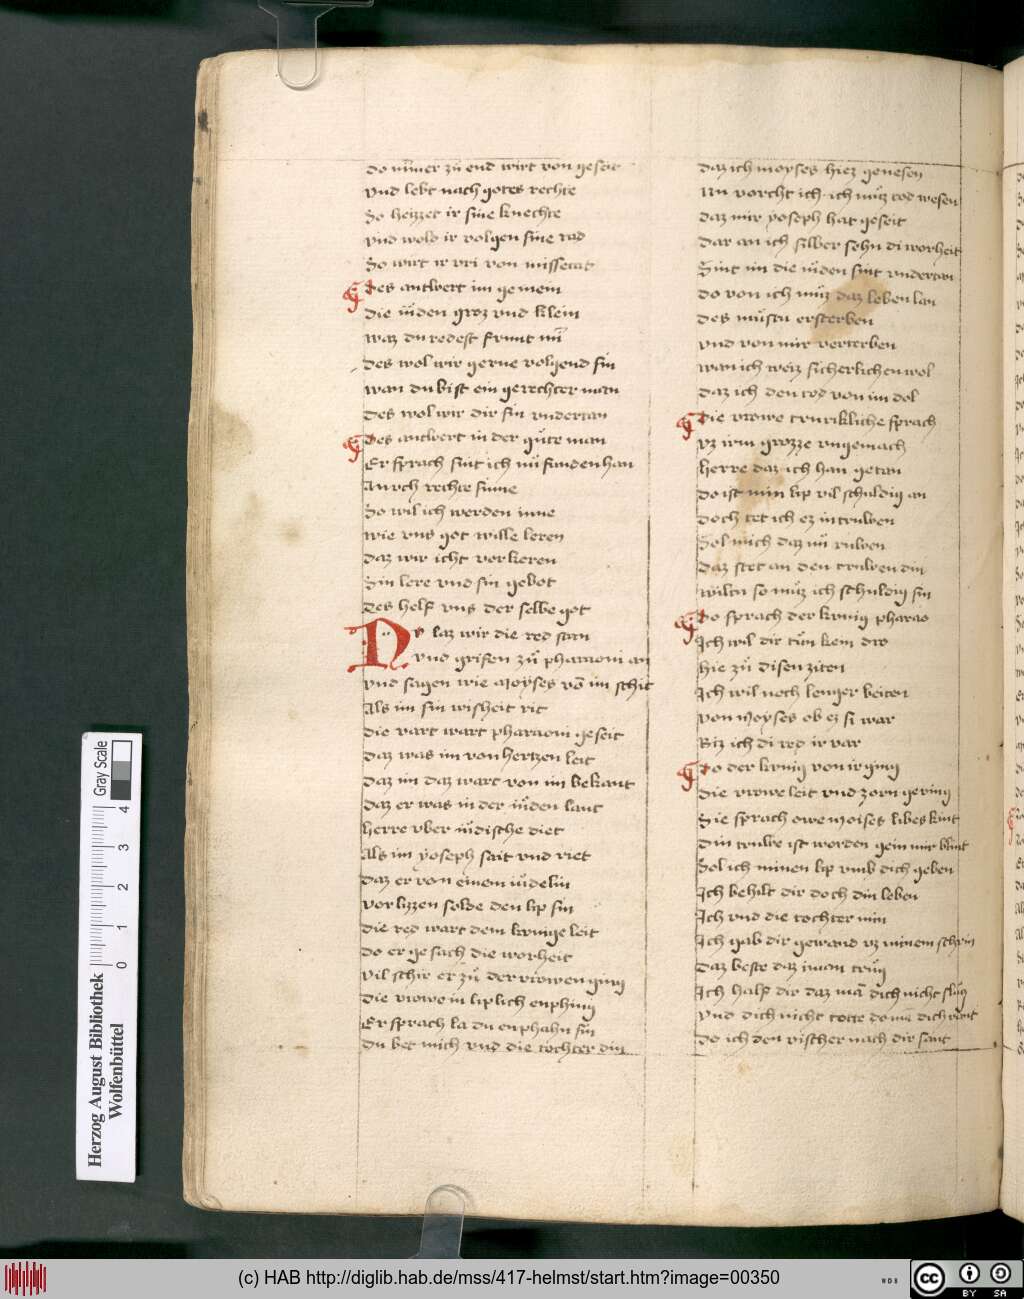 do nimer zu end wirt von geseit
vnd lebt nach gotes rechte
So heizzet ir sine knechte
vnd wold ir volgen sine rad
So wirt ir vri von missetat
Des antwert im gemein
die iuden groz vnd klein
waz du redest frunt
des wol wir gerne volgend sin
wan du bist ein gerechter man
des wol wir dir sin vndertan
Des antwert in der gute man
Er sprach sint ich nu funden han
An vch rechte sinne
So wil ich werden inne
wie vns got wille leren
daz wir icht verkeren
Sin lere vnd sin gebot
des help vns der selbe got
Nv laz wir die red stan
vnd grifen zu pharaoni an
vnd sagen wie Moyses vo im schit
Als im sin wisheit rit
die vart wart pharaoni geseit
daz was im von hertzen leit
daz im daz wart von im bekant
daz er was in der iuden lant
herre vber iudische diet
Als im yoseph seit vnd riet
daz er von einem iudelin
vorlizzen solde den lip sin
die red wart dem kunige leit
do er gesach die worheit
vil schir er zu der vrowen ging
die vrowe in liplich enphing
Er sprach la du enphahn sin
du bet mich vnd die tochter din
daz ich moyses hiez genesen
nu vorcht ich ich muz tod wesen
daz mir yoseph hat geseit
dar an ich silber sehn di worheit
Sint im die iuden sint vndertan
do von ich muz daz leben lan
des mustu ersterben
vnd von mir verterben
wan ich weiz sicherlichen wol
daz ich den tod von im dol
Die vrowe trurikliche sprach
vz irm grozze vngemach
herre daz ich han getan
do ist min lip vil schuldig an
doch tet ich ez in truwen
Sol mich daz nu ruwen
daz stet an den truwen din
wiltu so muz ich schuldig sin
Do sprach der kunig pharao
Ich wil dir tun kein dro
hie zu disen ziten
Ich wil noch lenger beiten
von Moyses ob ez si war
Biz ich di red ir var
Do der kunig von ir ging
die vrowe leit vnd zorn gevieng
Sie sprach owe Moises libes kint
din truwe ist worden gein mir blint
Sol ich minen lip vmb dich geben
Ich behilt dir doch din leben
Ich vnd die tochter min
Ich gab dir gewand vz minem schrin
daz beste daz iman trug
Ich half dir daz man dich nicht slug
vnd dich nicht totte do ma dich vant
do ich den vischer nach dir sant
Herzog August Bibliothek
Wolfenbüttel
0 1 2 3 4
Gray Scale
(c) HAB http://diglib.hab.de/mss/417-helmst/start.htm?image=00350
WDB
cc BY SA